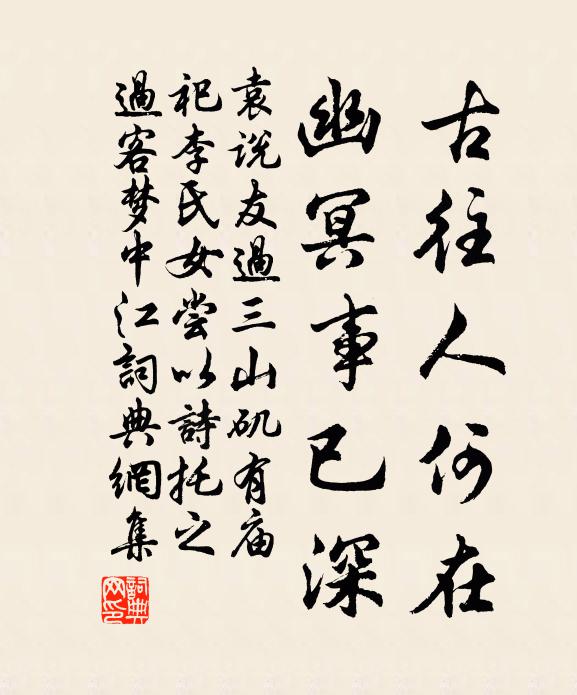 古往人何在
幽冥事已深
袁说友過三山矶有庙
祀李氏女尝以詩托之
過客梦中江詞典網集
詞典網印